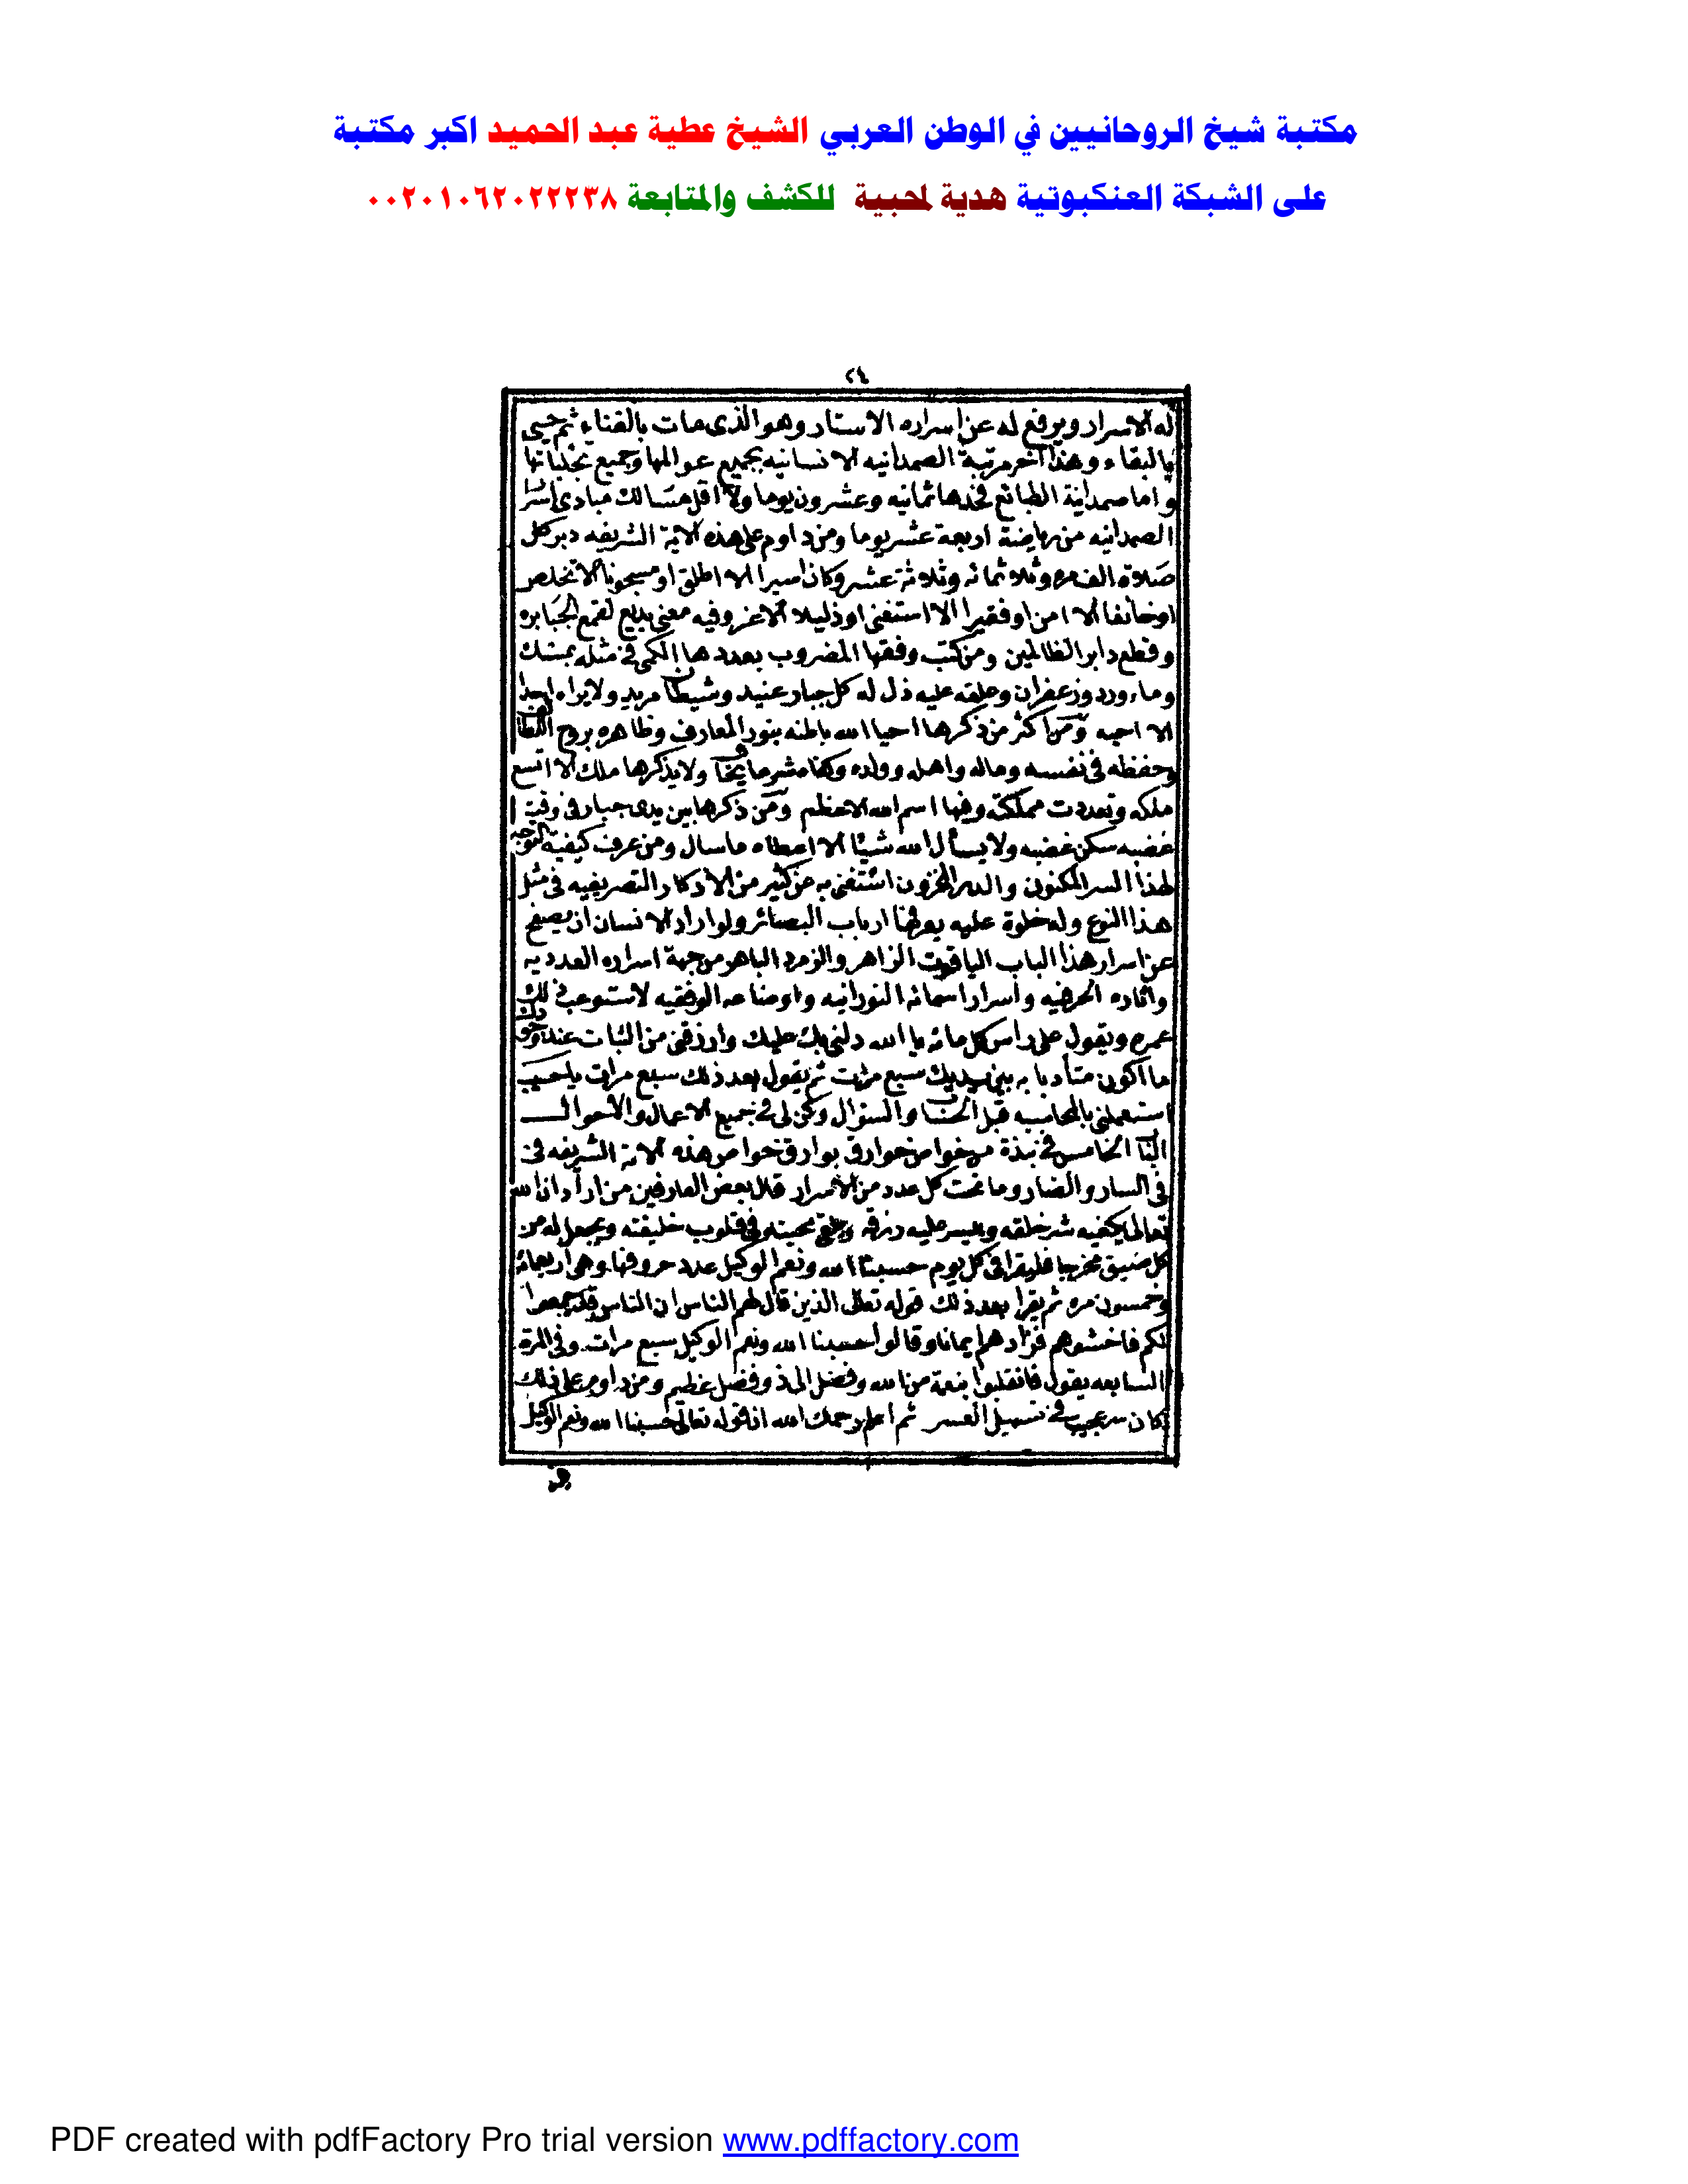 مكتبة شيخ الروحانيين في الوطن العربي الشيخ عطية عبد الحميد اكبر مكتبة
على الشبكة العنكبوتية هدية لمحبية للكشف والمتابعة ٠٠٢٠١٠٦٢٠٢٢٢٣٨
٢٤
له الاسرار ويرفع له عن اسراره الاستار وهو الذى مات بالفناء ثم حيى
بالبقاء وهذا آخر مرتبة الصمدانيه الانسانيه بجميع عوالمها وجميع تجلياتها
واما صمدانية الطبائع فحدها ثمانيه وعشرون يوما ولا اقل مسالك مبادى اسرار
الصمدانيه من رياضة اربعة عشر يوما ومن داوم على هذه الاية الشريفه دبر كل
صلاة الف مره وثلاثمائه وثلاثة عشر وكان اسيرا الا اطلق او مسجونا الا تخلص
او خائفا الا امن او فقيرا الا استغنى او ذليلا الا عز وفيه معنى بديع لقمع الجبابره
وقطع دابر الظالمين ومن كتب وفقها المضروب بعددها الكمى فى مثله بمسك
وماء ورد وزعفران وعلقه عليه ذل له كل جبار عنيد وشيطان مريد ولا يراه احدا
الا احبه ومن اكثر من ذكرها احيا الله باطنه بنور المعارف وظاهره بروح اللطائف
وحفظه فى نفسه وماله واهله وولده وكفاه شر ما يخاف ولا يذكرها ملك الا اتسع
ملكه وتعددت مملكته وفيها اسم الله الاعظم ومن ذكرها بين يدى جبار فى وقت
غضبه سكن غضبه ولا يسأل الله شيئا الا اعطاه ما سال ومن عرف كيفية التوجه
لهذا السر المكنون والدر المخزون استغنى به عن كثير من الاذكار التصريفيه فى مثل
هذا النوع وله خلوة عليه يعرفها ارباب البصائر ولو اراد الانسان ان يفصح
عن اسرار هذا الباب الياقوت الزاهر والزمرد الباهر من جهة اسراره العدديه
واثاره الحرفيه واسرار اسمائه النورانيه واوضاعه الوفقيه لاستوعب ذلك
عمره ويقول على راس كل مائه يا الله دلنى بك عليك وارزقنى من الثبات عند وجودك
ما اكون متأدبا به بين يديك سبع مرات ثم يقول بعد ذلك سبع مرات يا حسيب
استعملنى بالمحاسبه قبل الحساب والسؤال وكن لى فى جميع الاعمال والاحوال
الباب الخامس فى نبذة من خواص خوارق بوارق خواص هذه الاية الشريفه فى
فى السار والضار وما تحت كل عدد من الاسرار قال بعض العارفين من اراد ان الله
تعالى يكفيه شر خلقه وييسر عليه رزقه محبته فى قلوب خليقته ويجعل له من
كل ضيق مخرجا فليقرا فى كل يوم حسبنا الله ونعم الوكيل عدد حروفها وهى اربعمائة
وخمسون مره ثم يقرا بعد ذلك قوله تعالى الذين قال لهم الناس ان الناس قد جمعوا
لكم فاخشوهم فزادهم ايمانا وقالوا حسبنا الله ونعم الوكيل سبع مرات وفى المرة
السابعه يقول فانقلبوا بنعمة من الله وفضل الى ذو فضل عظيم ومن داوم على ذلك
كان سر عجيب فى تسهيل العسر ثم اعلم رحمك الله ان قوله تعالى حسبنا الله ونعم الوكيل
PDF created with pdfFactory Pro trial version www.pdffactory.com